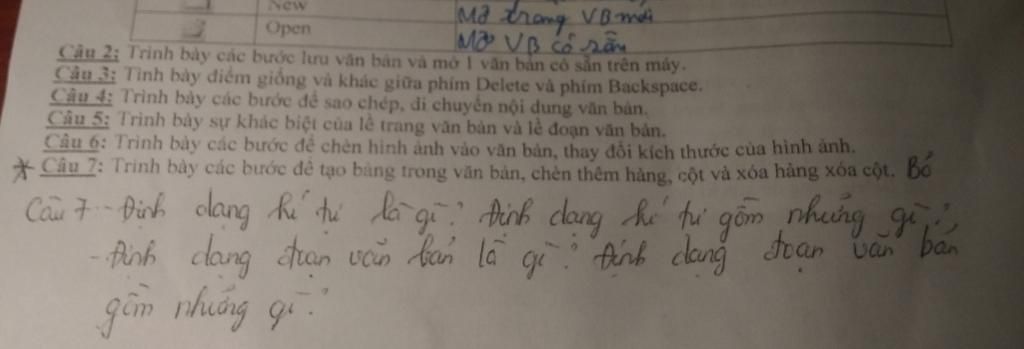 New Mở trang VB mới
Open Mở VB có sẵn
Câu 2: Trình bày các bước lưu văn bản và mở 1 văn bản có sẵn trên máy.
Câu 3: Tình bày điểm giống và khác giữa phím Delete và phím Backspace.
Câu 4: Trình bày các bước để sao chép, di chuyển nội dung văn bản.
Câu 5: Trình bày sự khác biệt của lề trang văn bản và lề đoạn văn bản.
Câu 6: Trình bày các bước để chèn hình ảnh vào văn bản, thay đổi kích thước của hình ảnh.
* Câu 7: Trình bày các bước để tạo bảng trong văn bản, chèn thêm hàng, cột và xóa hàng xóa cột. Bỏ
Câu 7 - Định dạng kí tự là gì? Định dạng kí tự gồm những gì?
- Định dạng đoạn văn bản là gì? Định dạng đoạn văn bản
gồm những gì?